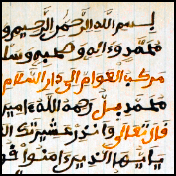 بسم الله الرحمن الرحيم و
محمد وءاله وصحبه وسلم
مركب العوام الى دار السلام
محمد بل رحمه الله ءامين
قال تعالى وانذر عشيرتك ال
يايها الذين ءامنوا قو